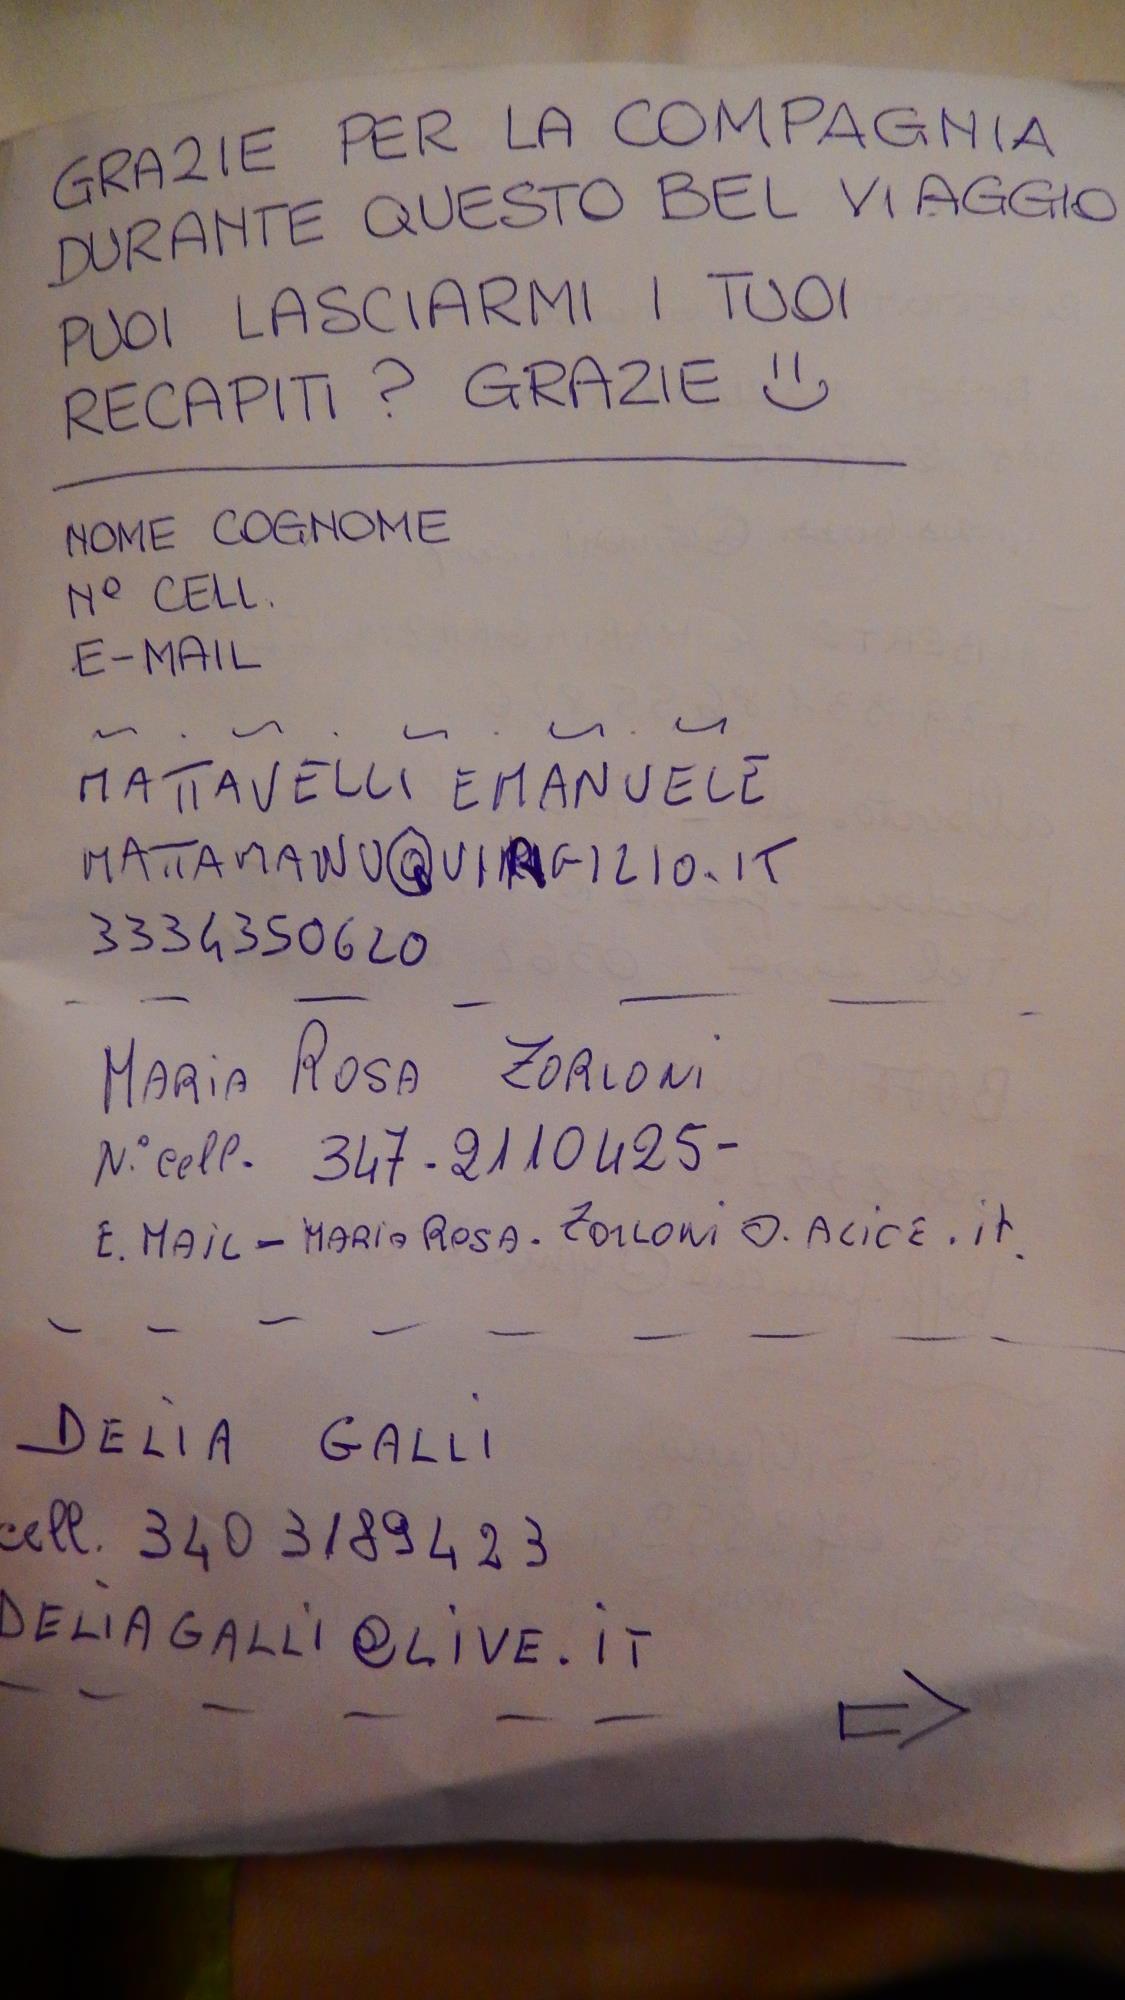 GRAZIE PER LA COMPAGNIA
DURANTE QUESTO BEL VIAGGIO
PUOI LASCIARMI I TUOI
RECAPITI? GRAZIE
NOME COGNOME
N° CELL.
E-MAIL
MATTAVELLI EMANUELE
MATTAMANU@VIRGILIO.IT
3334350620
MARIA ROSA ZORLONI
N.° cell. 347-2110425-
E. MAIL - MARIAROSA. ZORLONI @. ALICE.it.
DELIA GALLI
cell. 340 3189423
DELIAGALLI@LIVE.IT